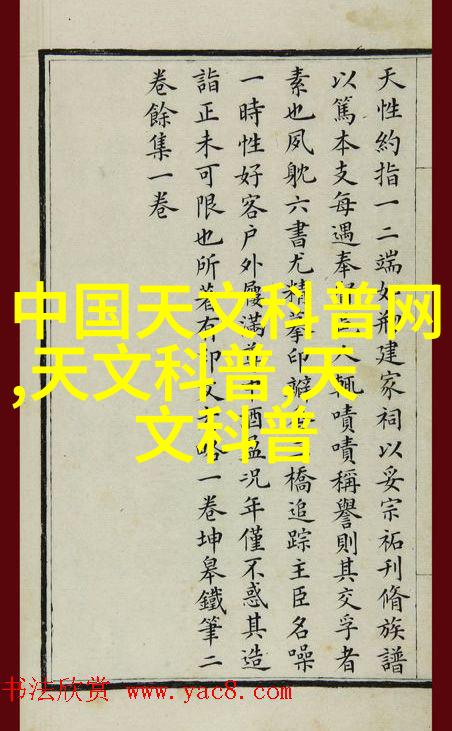 天性約指一二端如刱建家祠以妥宗祏刊脩族譜
以篤本支每遇奉人輒嘖嘖稱譽則其交孚者
素也夙躭六書尤精摹印橋追踪主臣名噪
一時性好客户外屨滿中酒盈況年僅不惑其造
詣正未可限也所著有印文略一卷坤皋鐵筆二
卷餘集一卷
中国天文科普网
,天文科普,天
文科普
书法欣赏 www.yac8.com